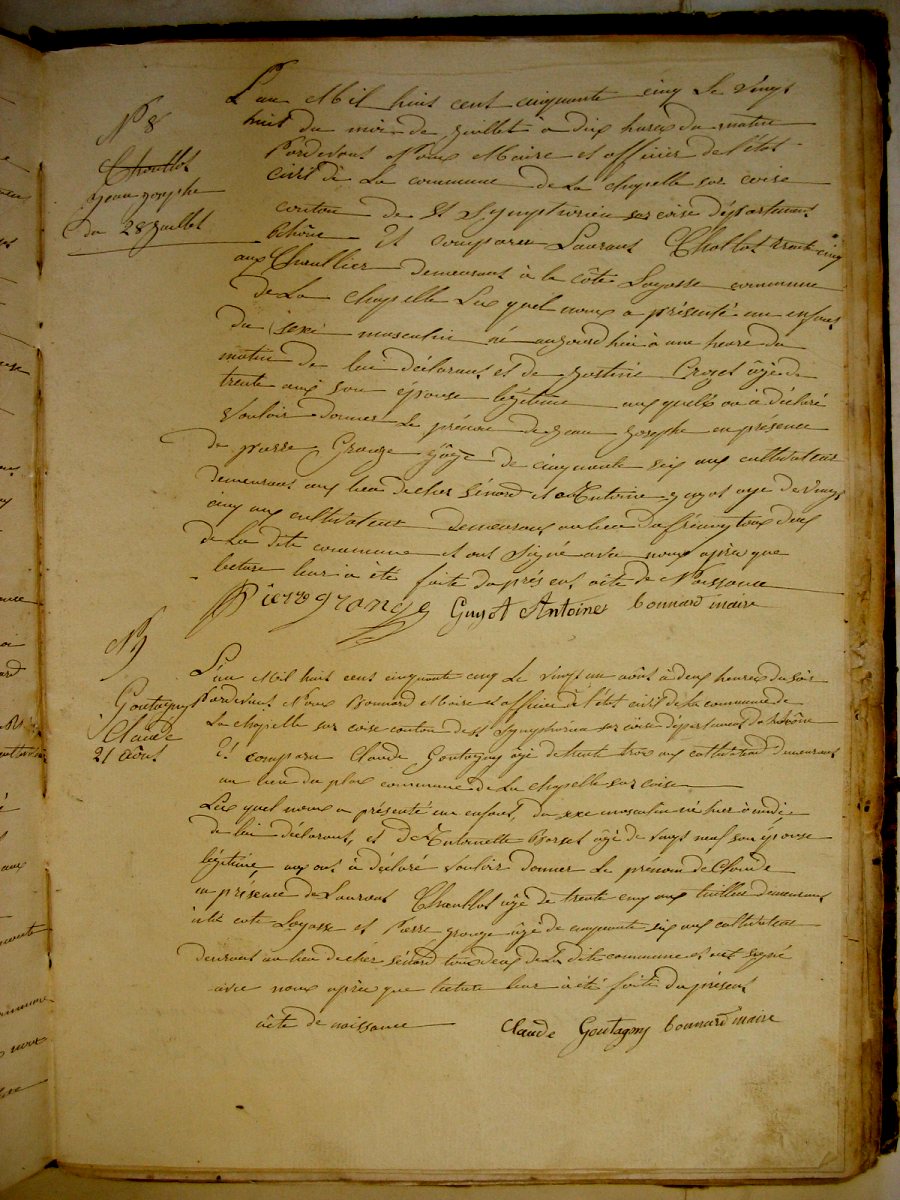 N° 8
Chollot
jean josephe
du 28 juillet
L'an Mil huit cent cinquante cinq Le vingt
huit du mois de juillet a dix heures du matin
Pardevant Nous Maire et officier de l'état
civil de La commune de La chapelle sur coise
canton de St Symphorien sur coise départemant
Rhône Et comparu Laurant Chollot trente cinq
ans demeurant à la côte Layosse commune
de La chapelle Le quel nous a présenté un enfant
du sexe masculin né aujourdhui à une heure du
matin de lui déclarant et de Crozet âgé de
trente ans son épouse légitime aux quels on a déclaré
vouloir donner Le prénom de jean Josephe en présence
de pierre Grange âgé de cinquante six ans cultivateur
demeurant au lieu de cher Sénard et Antoine guyot age de vingt
cinq ans cultivateur demeurant au lieu du tous deux
de La dite commune et ont Signé avec nous après que
lecture leur a été faite du présent acte de Naissance
Pierre grange Guyot Antoine bonnard maire
N 9
Goutagny
Claude
21 Aout
L'an Mil huit cent cinquante cinq Le vingt un août à deux heures du soir
Pardevant Nous Bonnard Maire et officier de l'état civil de la commune de
La chapelle sur coise canton de st Symphorien sur coise département du Rhône
Et comparu Claude Goutagny âgé de trente trois ans cultivateur demeurant
au lieu du plat commune de La chapelle sur coise
Le quel nous a présenté un enfant, du sexe masculin né hier à midi
de lui déclarant, et d'Antoinette âgé de vingt neuf son épouse
légitime, aux ont à déclaré vouloir donner Le prénom de Claude
en présence de Laurant Chollot âgé de trente cinq ans tuillier demeurant
à la cote Layosse et Pierre grange âgé de cinquante six ans cultivateur
demeurant au lieu de cher sénard tous deux de La dite commune et ont signé
avec nous après que lecture leur a été faite du présent
acte de naissance
Claude Goutagny bonnard maire